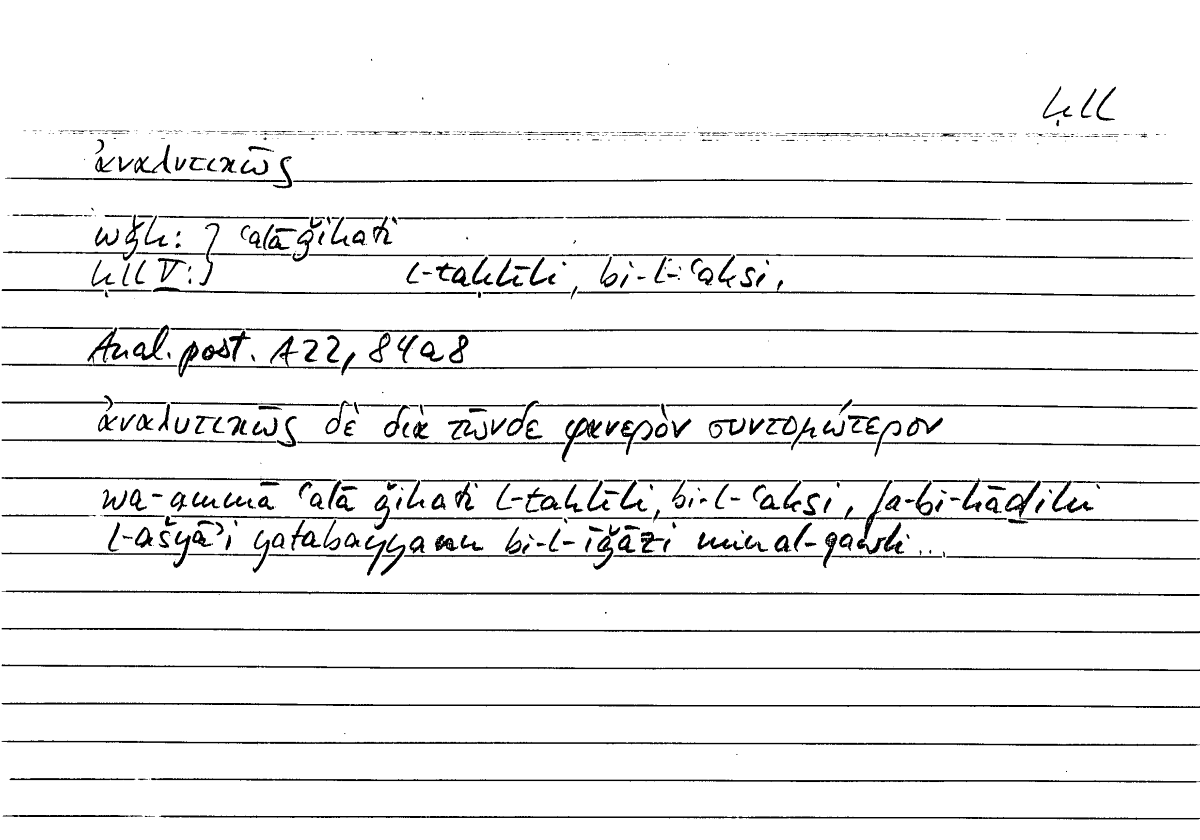 ḥll
ἀναλυτικῶς
wǧh: } ʿalā ǧihati
ḥll V: } l-taḥlīli, bi-l-ʿaksi,
Anal. post. A22, 84a8
ἀναλυτικῶς δὲ διὰ τῶνδε φανερὸν συντομώτερον
wa-ammā ʿalā ǧihati l-taḥlīli, bi-l-ʿaksi, fa-bi-hāḏihi
l-ašyāʾi yatabayyanu bi-l-īǧāzi mina l-qawli...